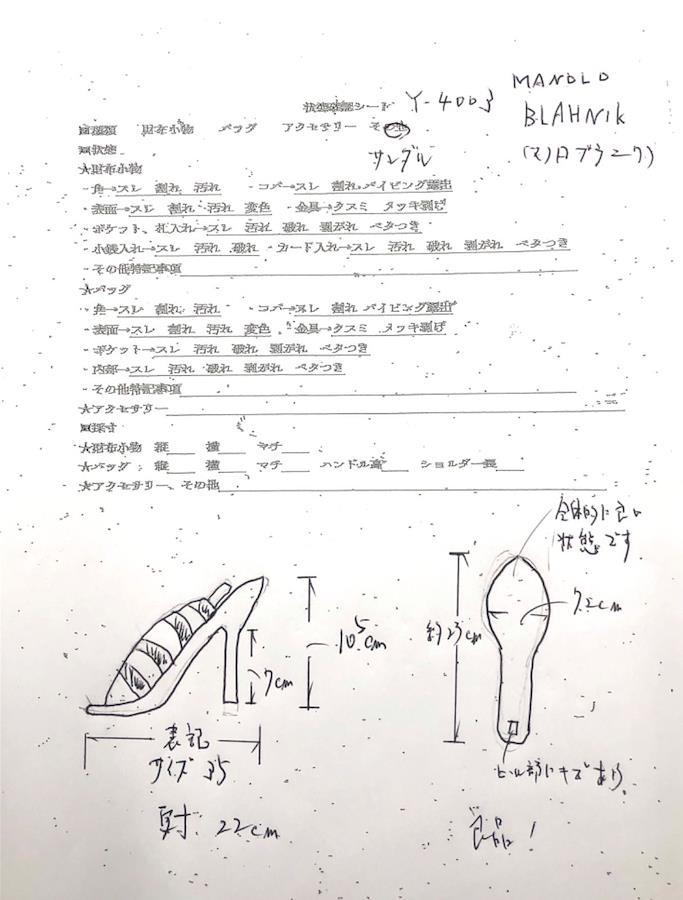 状態確認シート Y-4003 MANOLO
BLAHNIK
(マノロブラニク)
■種類 財布小物 バッグ アクセサリー その他
サンダル
■状態
★財布小物
・角→スレ 割れ 汚れ ・コバ→スレ 割れ パイピング露出
・表面→スレ 割れ 汚れ 変色 ・金具→クスミ メッキ剥げ
・ポケット、札入れ→スレ 汚れ 破れ 剥がれ ベタつき
・小銭入れ→スレ 汚れ 破れ ・カード入れ→スレ 汚れ 破れ 剥がれ ベタつき
・その他特記事項
★バッグ
・角→スレ 割れ 汚れ ・コバ→スレ 割れ パイピング露出
・表面→スレ 割れ 汚れ 変色 ・金具→クスミ メッキ剥げ
・ポケット→スレ 汚れ 破れ 剥がれ ベタつき
・内部→スレ 汚れ 破れ 剥がれ ベタつき
・その他特記事項
★アクセサリー
■採寸
★財布小物 縦 横 マチ
★バッグ 縦 横 マチ ハンドル高 ショルダー長
★アクセサリー、その他
全体的に良い
状態です
7.2cm
約23cm
10.5cm
7cm
表記
サイズ 35
ヒール部にキズあり。
実寸 22cm
良品!